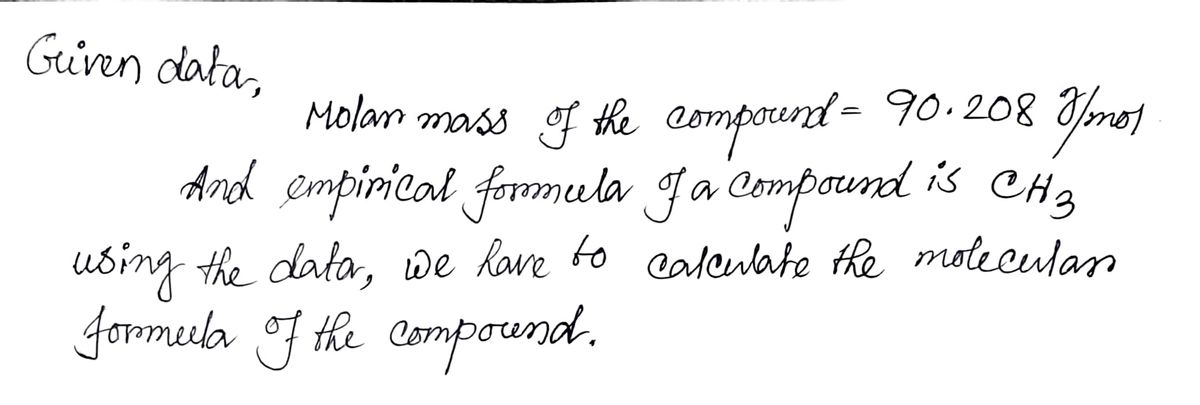 Given data,
Molar mass of the compound = 90.208 g/mol
And empirical formula of a compound is CH₃
using the data, we have to calculate the molecular
formula of the compound.